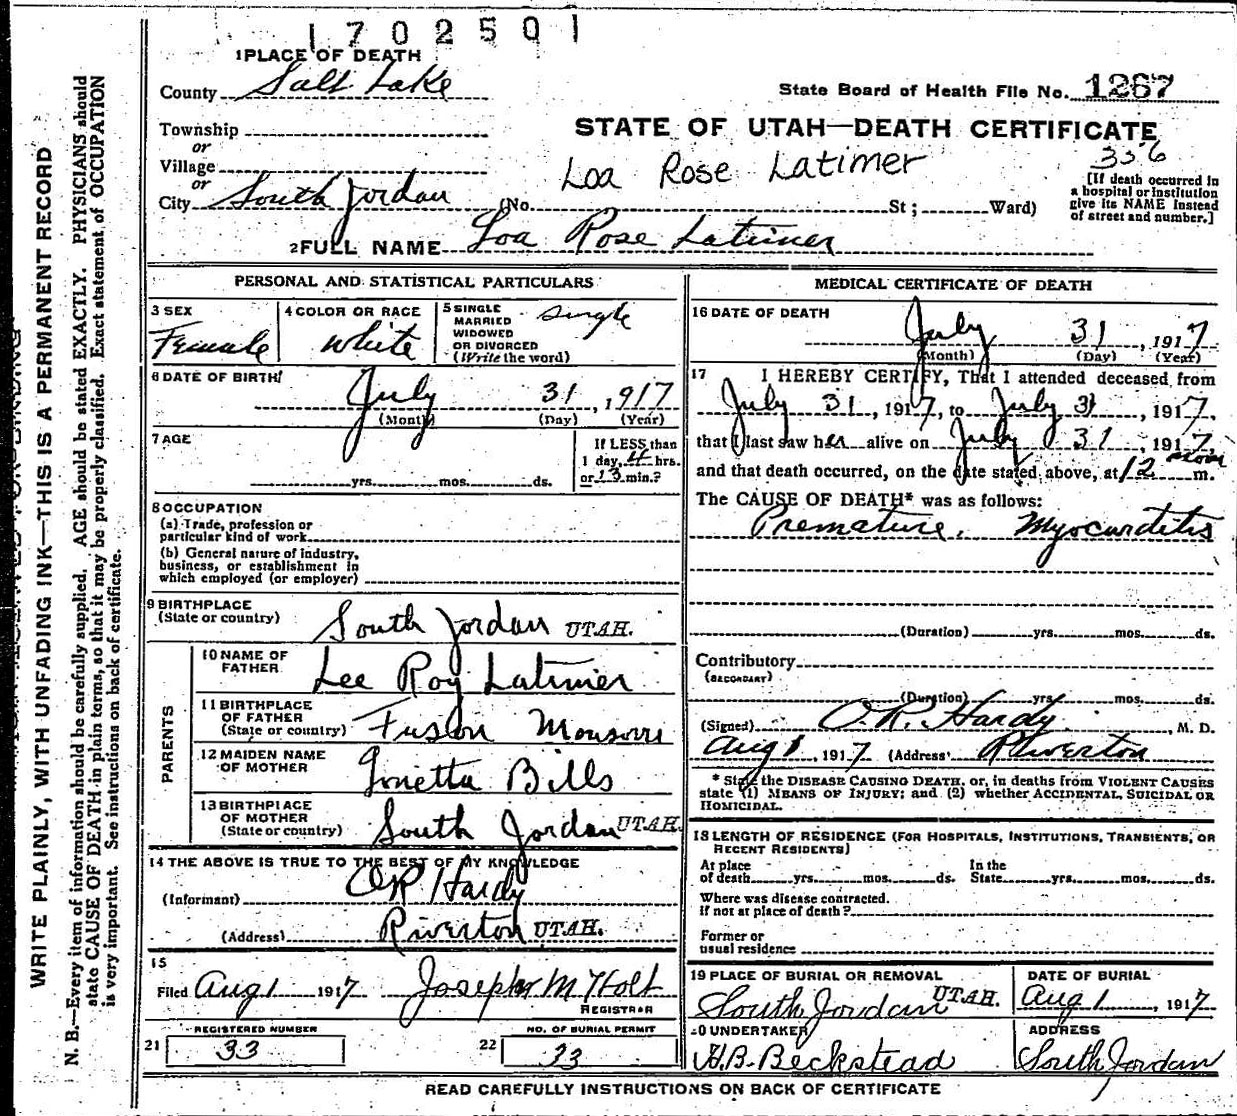 1702501
1 PLACE OF DEATH
County Salt Lake
State Board of Health File No. 1267
Township
or
Village
or
City South Jordan (No. St; Ward)
STATE OF UTAH—DEATH CERTIFICATE
Loa Rose Latimer
356
[If death occurred in
a hospital or institution
give its NAME instead
of street and number.]
2 FULL NAME Loa Rose Latimer
PERSONAL AND STATISTICAL PARTICULARS
3 SEX
Female
4 COLOR OR RACE
White
5 SINGLE
MARRIED
WIDOWED
OR DIVORCED
(Write the word)
single
6 DATE OF BIRTH
July 31, 1917
(Month) (Day) (Year)
7 AGE
yrs. mos. ds.
If LESS than
1 day, 4 hrs.
or 13 min.?
8 OCCUPATION
(a) Trade, profession or
particular kind of work
(b) General nature of industry,
business, or establishment in
which employed (or employer)
9 BIRTHPLACE
(State or country) South Jordan UTAH.
PARENTS
10 NAME OF
FATHER Lee Roy Latimer
11 BIRTHPLACE
OF FATHER
(State or country)
12 MAIDEN NAME
OF MOTHER Bills
13 BIRTHPLACE
OF MOTHER
(State or country) South Jordan UTAH.
14 THE ABOVE IS TRUE TO THE BEST OF MY KNOWLEDGE
(Informant) OR Hardy
(Address) Riverton UTAH.
15
Filed Aug 1 1917 Joseph M Holt
REGISTRAR
REGISTERED NUMBER
21 33
NO. OF BURIAL PERMIT
22 33
MEDICAL CERTIFICATE OF DEATH
16 DATE OF DEATH
July 31, 1917
(Month) (Day) (Year)
17 I HEREBY CERTIFY, That I attended deceased from
July 31, 1917, to July 31, 1917,
that I last saw her alive on July 31, 1917,
and that death occurred, on the date stated above, at 12 noon m.
The CAUSE OF DEATH* was as follows:
Premature. Myocarditis
(Duration) yrs. mos. ds.
Contributory
(SECONDARY)
(Duration) yrs. mos. ds.
(Signed) O.R. Hardy, M. D.
Aug 1, 1917 (Address) Riverton
* State the DISEASE CAUSING DEATH, or, in deaths from VIOLENT CAUSES
state (1) MEANS OF INJURY; and (2) whether ACCIDENTAL, SUICIDAL OR
HOMICIDAL.
18 LENGTH OF RESIDENCE (FOR HOSPITALS, INSTITUTIONS, TRANSIENTS, OR
RECENT RESIDENTS)
At place In the
of death yrs. mos. ds. State yrs. mos. ds.
Where was disease contracted.
if not at place of death?
Former or
usual residence
19 PLACE OF BURIAL OR REMOVAL
South Jordan UTAH.
DATE OF BURIAL
Aug 1, 1917
20 UNDERTAKER
H.B. Beckstead
ADDRESS
South Jordan
READ CAREFULLY INSTRUCTIONS ON BACK OF CERTIFICATE
WRITE PLAINLY, WITH UNFADING INK—THIS IS A PERMANENT RECORD
N. B.—Every item of information should be carefully supplied. AGE should be stated EXACTLY. PHYSICIANS should
state CAUSE OF DEATH in plain terms, so that it may be properly classified. Exact statement of OCCUPATION
is very important. See instructions on back of certificate.